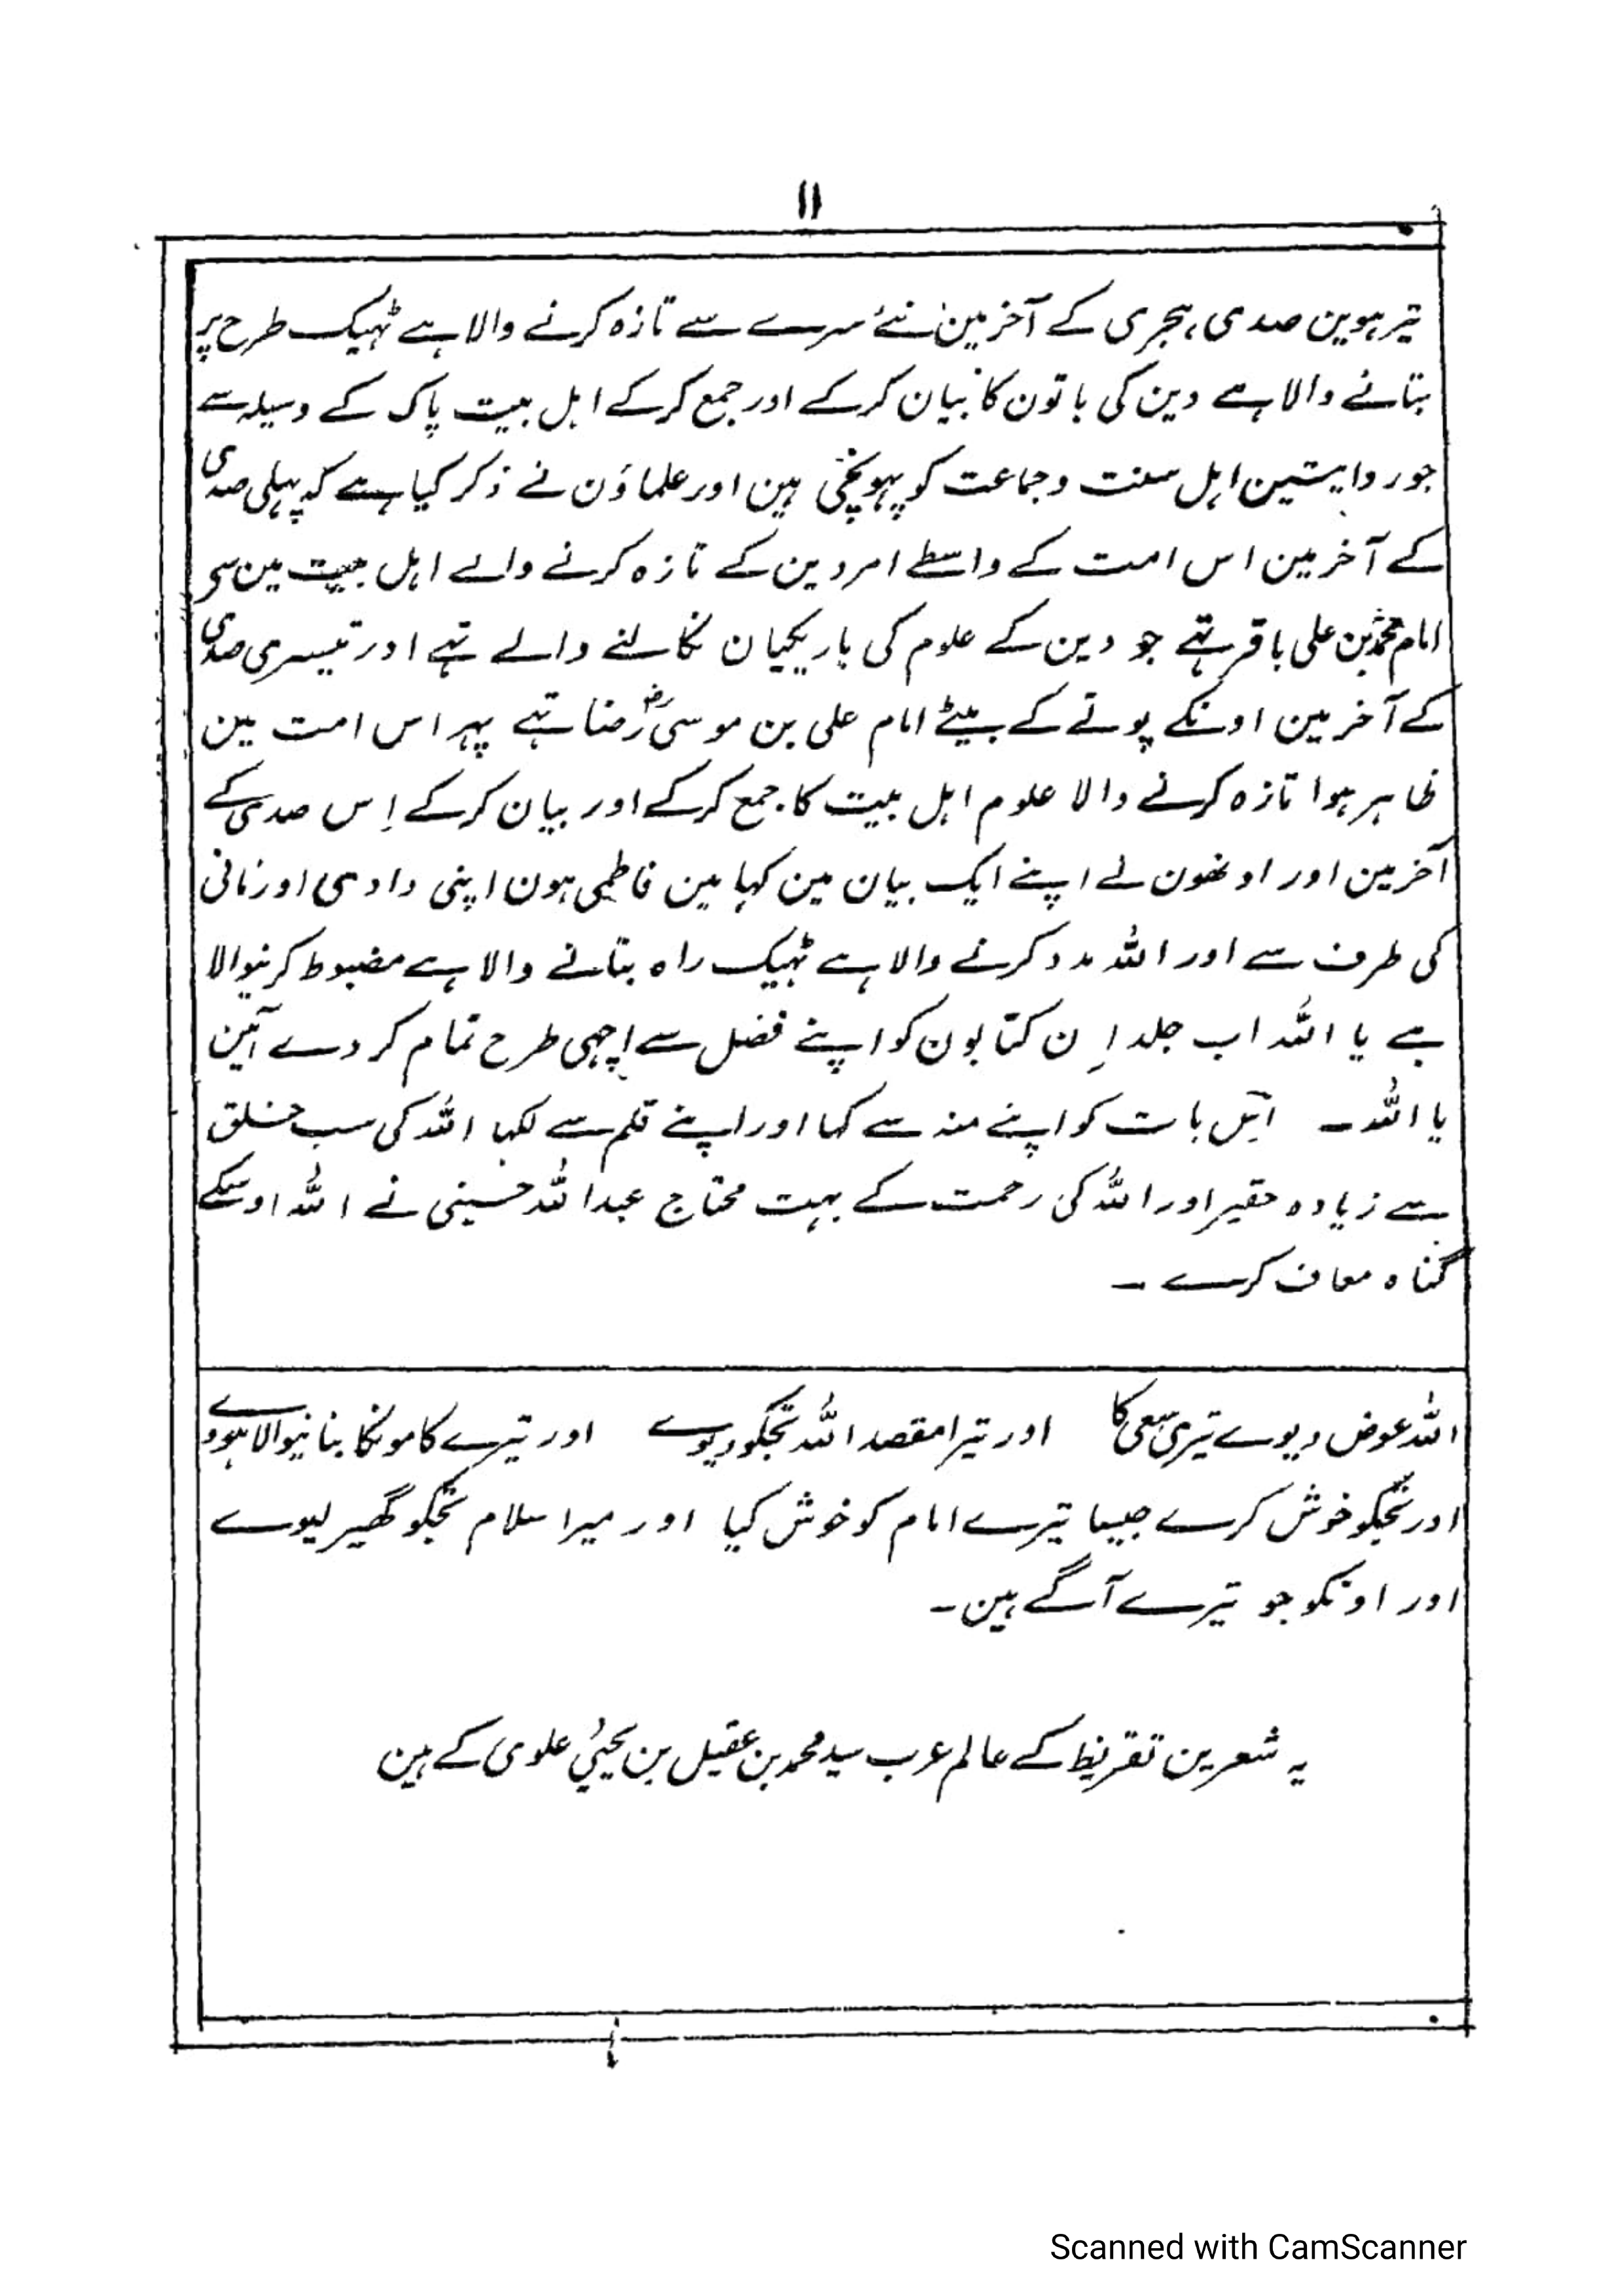 ۱۱
تیرہوین صدی ہجری کے آخر مین نئے سرے سے تازہ کرنے والا ہے ٹہیک طرح پر
بتانے والا ہے دین کی باتون کا بیان کرکے اور جمع کرکے اہل بیت پاک کے وسیلہ سے
جو روایتین اہل سنت وجماعت کو پہونچی ہین اور علماؤن نے ذکر کیا ہے کہ پہلی صدی
کے آخر مین اس امت کے واسطے امر دین کے تازہ کرنے والے اہل بیت مین سی
امام محمد بن علی باقر تہے جو دین کے علوم کی باریکیان نکالنے والے تہے اور تیسری صدی
کے آخر مین اونکے پوتے کے بیٹے امام علی بن موسی رضاؓ تہے پہر اس امت مین
ظاہر ہوا تازہ کرنے والا علوم اہل بیت کا جمع کرکے اور بیان کرکے اِس صدی کے
آخر مین اور اونھون نے اپنے ایک بیان مین کہا مین فاطمی ہون اپنی دادی اور نانی
کی طرف سے اور اللہ مدد کرنے والا ہے ٹہیک راہ بتانے والا ہے مضبوط کرنیوالا
ہے یا اللہ اب جلد اِن کتابون کو اپنے فضل سے اچہی طرح تمام کر دے آمین
یا اللہ۔ اس بات کو اپنے منہ سے کہا اور اپنے قلم سے لکہا اللہ کی سب خلق
سے زیادہ حقیر اور اللہ کی رحمت کے بہت محتاج عبداللہ حسینی نے اللہ اوسکے
گناہ معاف کرے ۔
اللہ عوض دیوے تیری سعی کا اور تیرا مقصد اللہ تجکو دیوے اور تیرے کامونکا بنانیوالا ہووے
اور تجکو خوش کرے جیسا تیرے امام کو خوش کیا اور میرا سلام تجکو گھیر لیوے
اور اونکو جو تیرے آگے ہین۔
یہ شعرین تقریظ کے عالم عرب سید محمد بن عقیل بن یحییٰ علوی کے ہین
Scanned with CamScanner